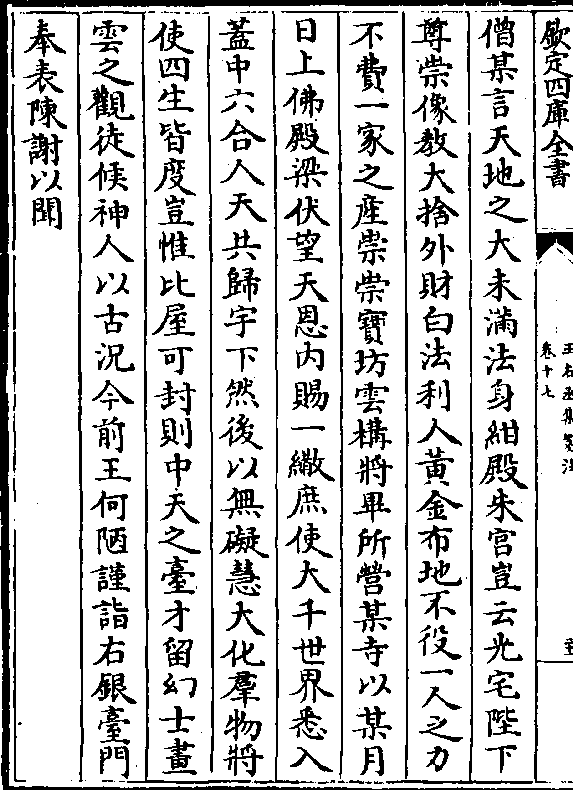 欽定四庫全書
王右丞集箋注
卷十七
僧某言天地之大未滿法身紺殿朱宫豈云光宅陛下
尊崇像教大捨外財白法利人黄金布地不役一人之力
不費一家之産崇崇寶坊雲構將畢所營某寺以某月
日上佛殿梁伏望天恩内賜一繖庶使大千世界悉入
葢中六合人天共歸宇下然後以無礙慧大化羣物將
使四生皆度豈惟比屋可封則中天之臺才留幻士畫
雲之觀徒候神人以古況今前王何陋謹詣右銀臺門
奉表陳謝以聞